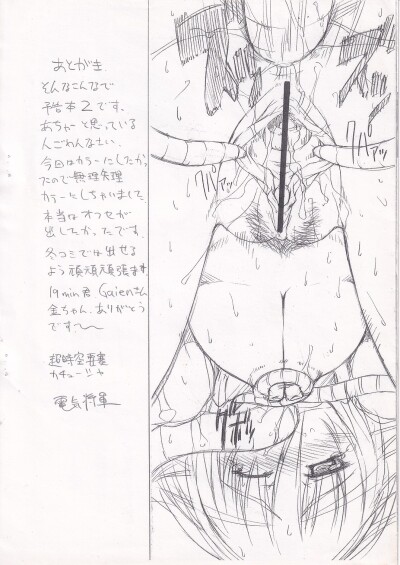 あとがき
そんなこんなで
予告本2です。
あちゃーと思っている
人ごめんなさい。
今回はカラーにしたかっ
たので無理矢理
カラーにしちゃいました
本当はオフセが
出したかったです。
冬コミでは出せる
よう頑頑頑張ます
19min君 Gaienさん
金ちゃん、ありがとう
です〜
超時空要塞
カチューシャ
電気将軍